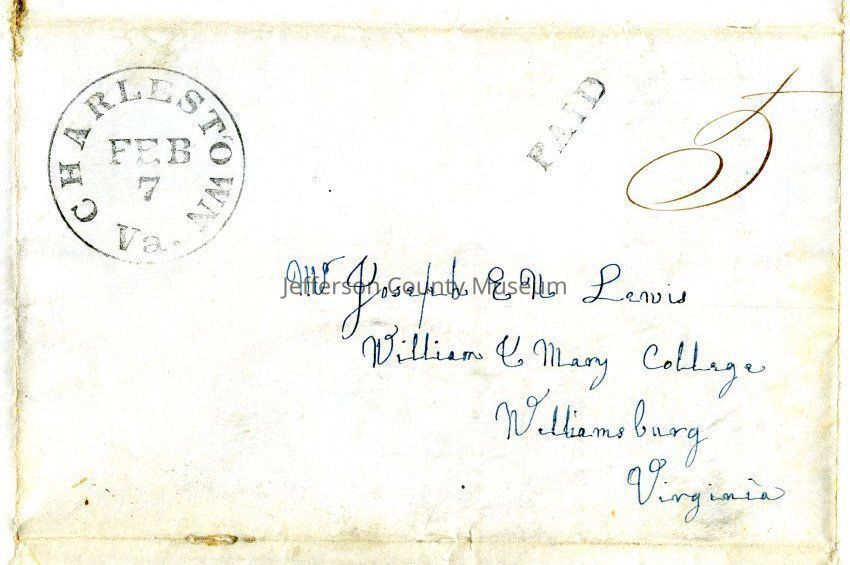 CHARLESTOWN
FEB
7
Va.
PAID
5
Mr Joseph E N Lewis
Jefferson County Museum
William & Mary College
Williamsburg
Virginia